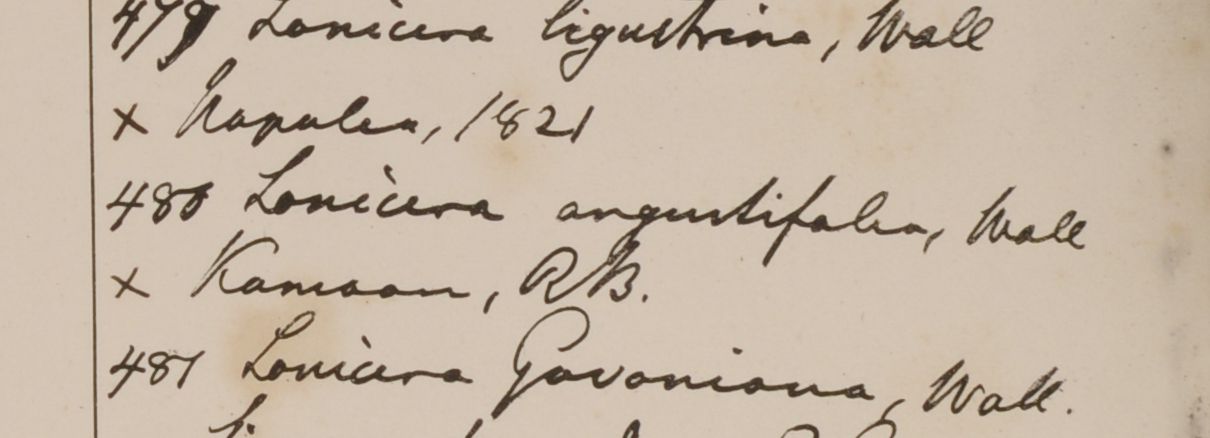 479 Lonicera ligustrina, Wall
x Napalea, 1821
480 Lonicera angustifolia, Wall
x Kamaon, RB.
481 Lonicera Govaniana, Wall.